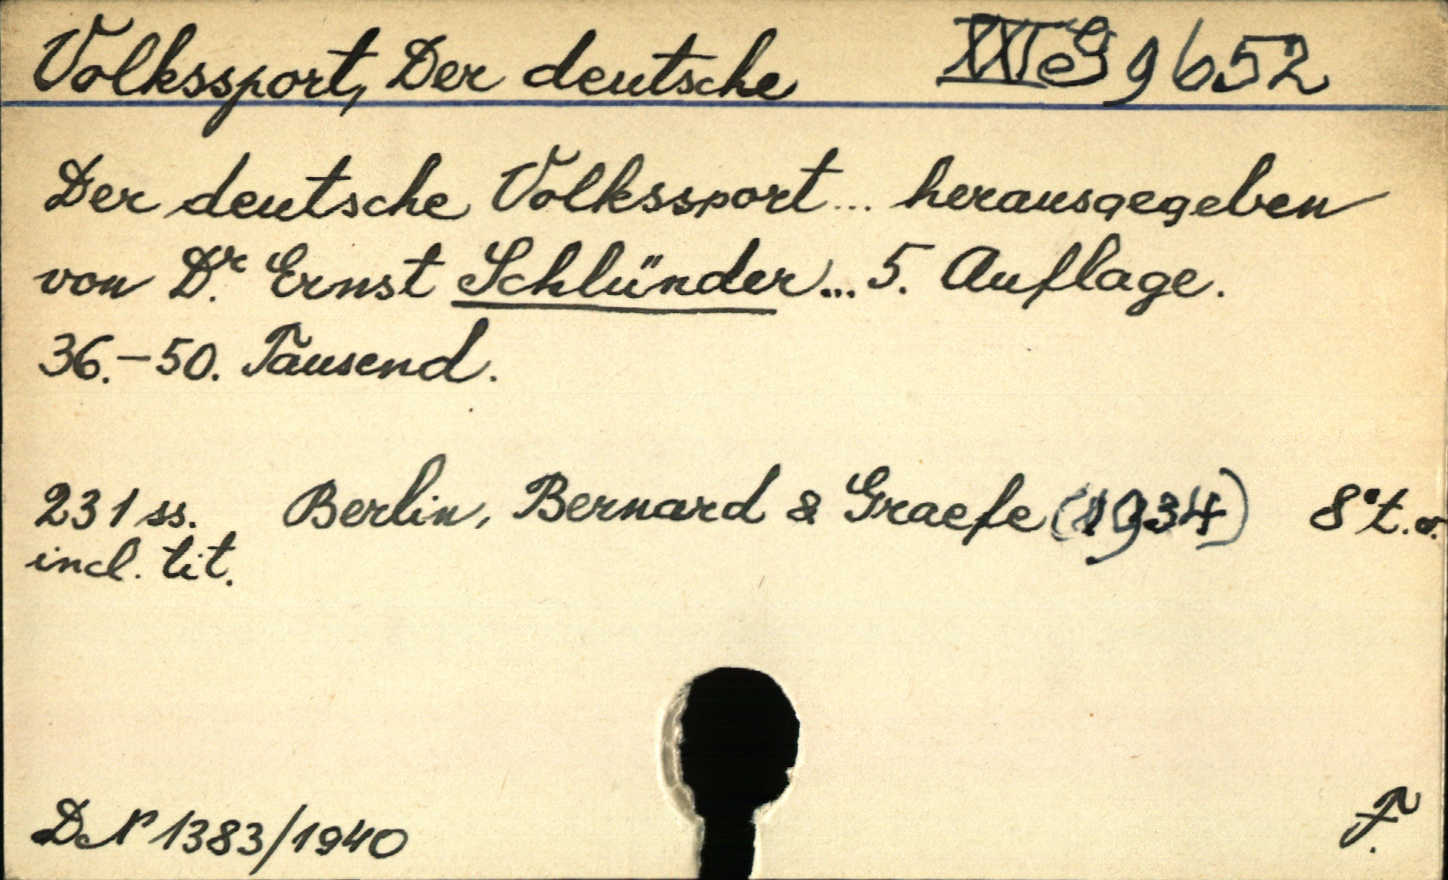 Volkssport, Der deutsche XXI G 9652
Der deutsche Volkssport... herausgegeben
von Dr. Ernst Schlünder... 5. Auflage.
36.-50. Tausend.
231 ss. Berlin, Bernard & Graefe (1934) 8° t.
incl. tit.
D N 1383/1940
F.